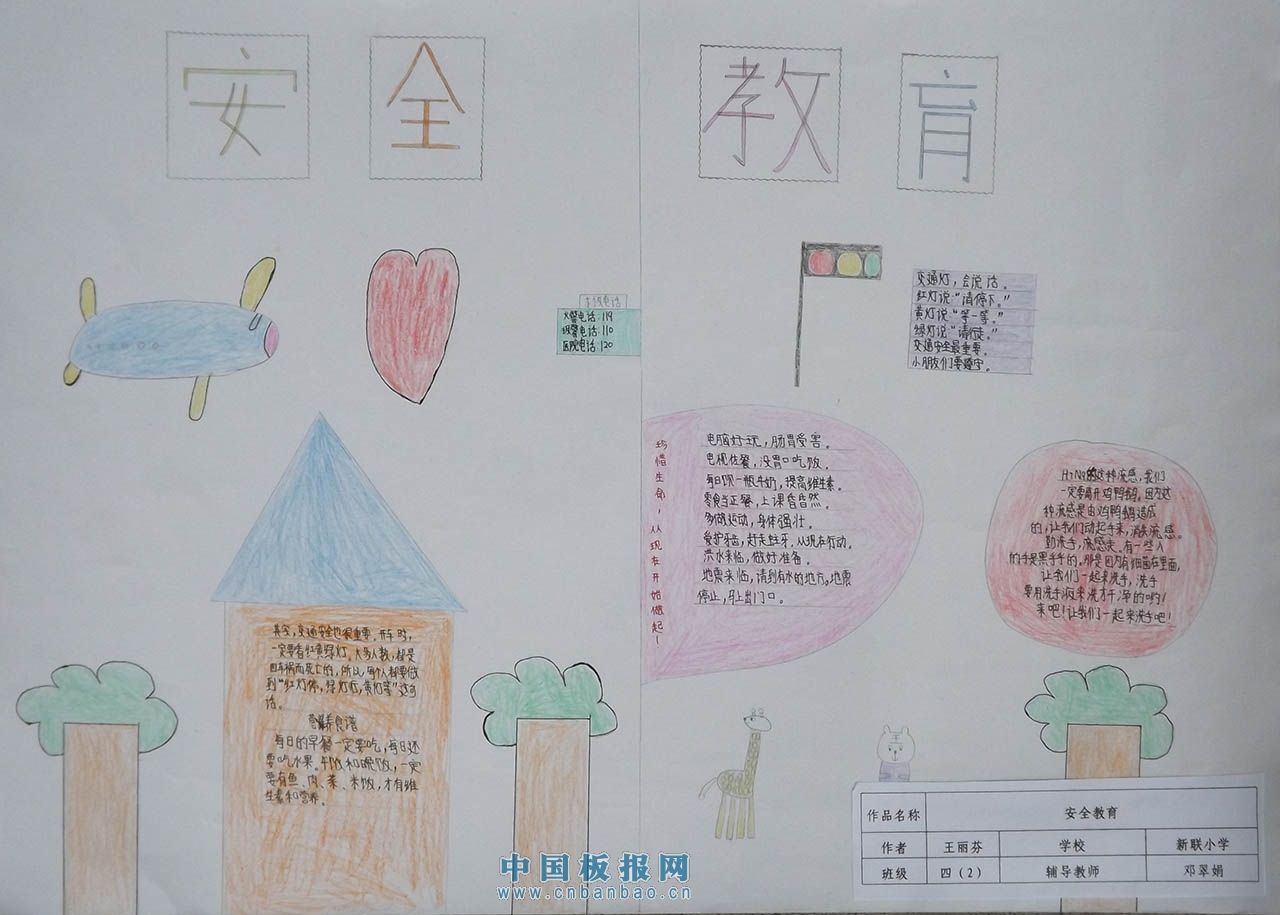 安全
教育
火警电话:119
报警电话:110
医院电话:120
交通灯，会说话。
红灯说:“请停下。”
黄灯说:“等一等。”
绿灯说:“请行走。”
交通安全最重要。
小朋友们要遵守。
珍惜生命，从现在开始做起！
电脑好玩，肠胃受害。
电视佐餐，没胃口吃饭。
每日喝一瓶牛奶，提高维生素。
零食当正餐，上课昏昏然。
多做运动，身体强壮。
爱护牙齿，赶走蛀牙，从现在行动。
洪水来临，做好准备。
地震来临，请到有水的地方，地震
停止，马上出门口。
H7N9的这种流感，我们
一定要离开鸡鸭鹅，因为这
种流感是由鸡鸭鹅造成
的，让我们动起手来，消灭流感。
勤洗手，流感走。有一些人
的手是黑乎乎的，那是因为有细菌在里面，
让我们一起来洗手，洗手
要用洗手液来洗才干净的哟！
来吧！让我们一起来洗手吧！
其实，交通安全也很重要，开车时，
一定要看红黄绿灯。大多人数，都是
因车祸而死亡的，所以，每个人都要做
到“红灯停，绿灯行，黄灯等”这句
话。
营养食谱
每日的早餐一定要吃，每日还
要吃水果。午饭和晚饭，一定
要有鱼、肉、菜、米饭，才有维
生素和营养。
作品名称 安全教育
作者 王丽芬 学校 新联小学
班级 四（2） 辅导教师 邓翠娟
中国板报网
www.cnbanbao.cn